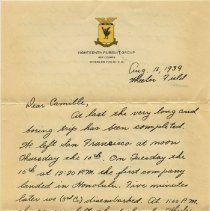 EIGHTEENTH PURSUIT GROUP
AIR CORPS
WHEELER FIELD, T. H.
Aug. 18, 1939
Wheeler Field
Dear Camille,
At last the very long and
boring trip has been completed.
We left San Francisco at noon
Thursday the 10th. On Tuesday the
15th at 12:30 P.M. the first company
landed in Honolulu. Five minutes
later we (3rd Co.) disembarked. At 1:00 P.M.